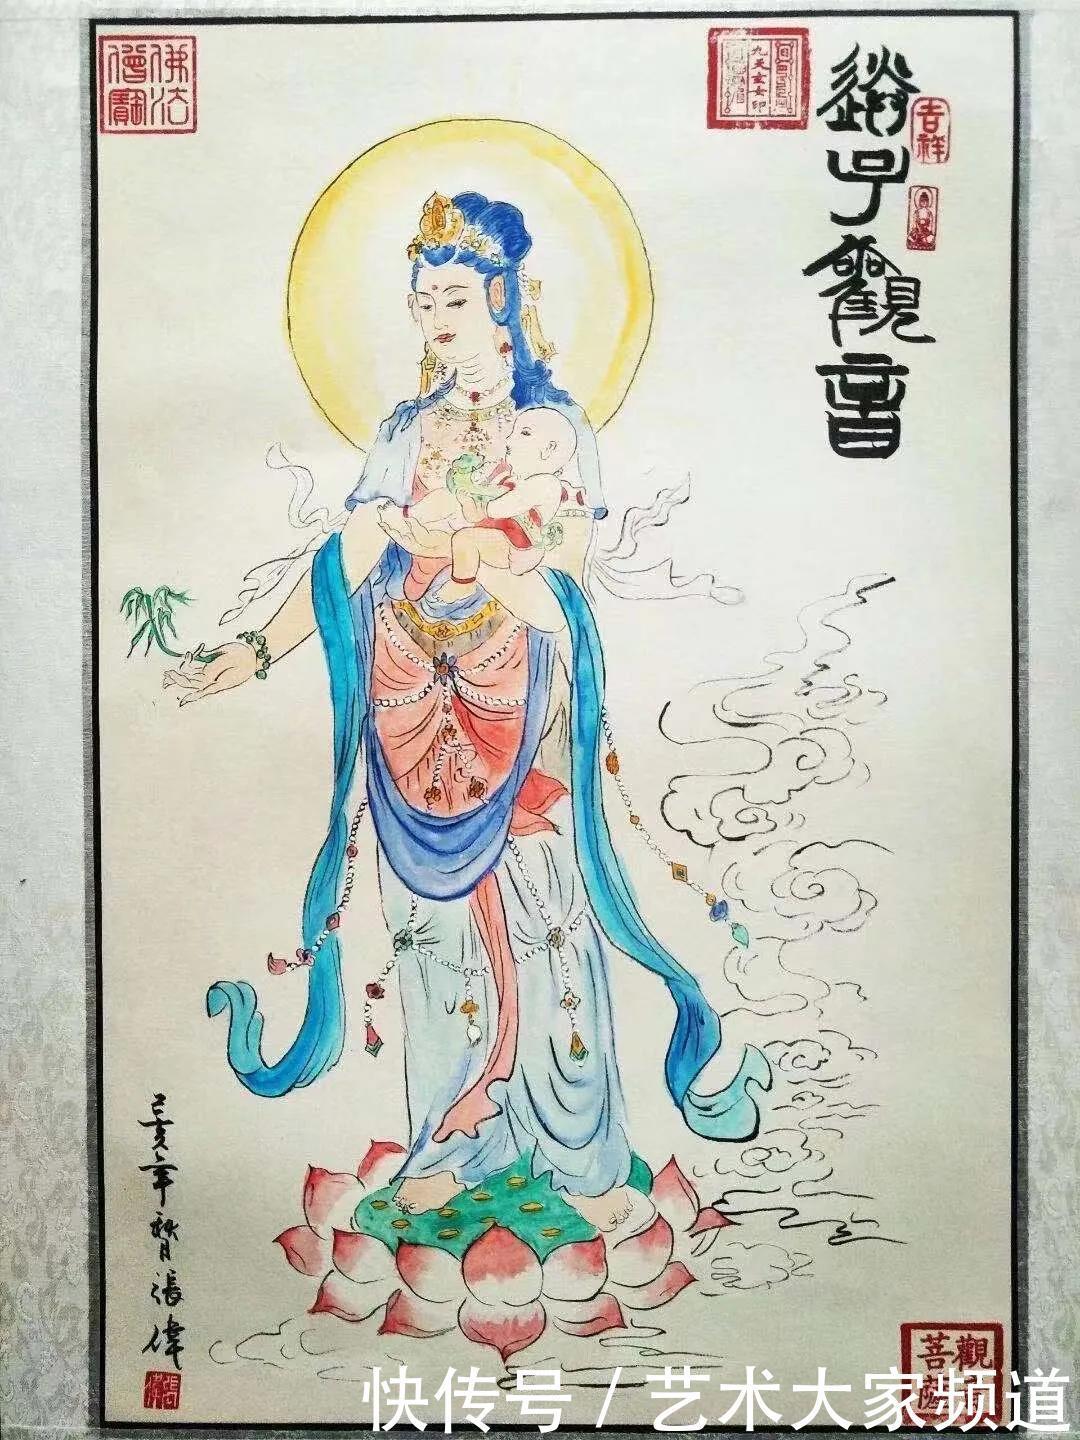 送子觀音
吉祥
佛法僧寶
九天玄女印
己亥年秋月張偉
張偉
觀菩薩
快传号/艺术大家频道